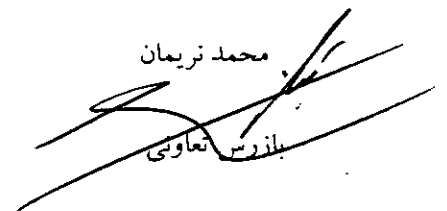 محمد نریمان
بازرس تعاونی